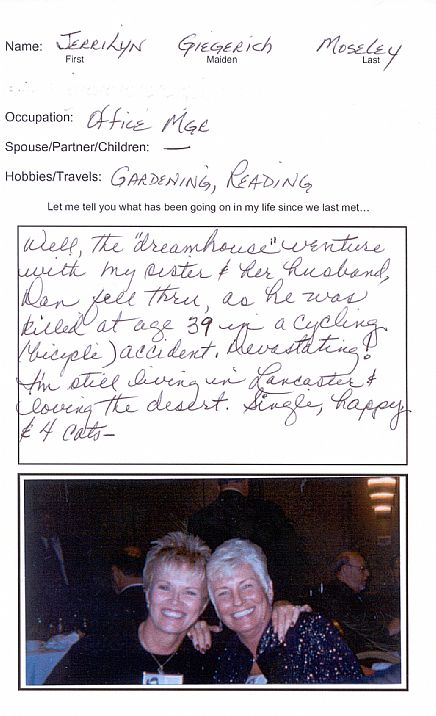 Name: JERRILYN GIEGERICH MOSELEY
First Maiden Last
Occupation: OFFICE MGR
Spouse/Partner/Children: —
Hobbies/Travels: GARDENING, READING
Let me tell you what has been going on in my life since we last met...
Well, the "dreamhouse" venture
with my sister & her husband,
Dan fell thru, as he was
killed at age 39 in a cycling
(bicycle) accident. Devastating!
I'm still living in Lancaster &
loving the desert. Single, happy
& 4 cats—